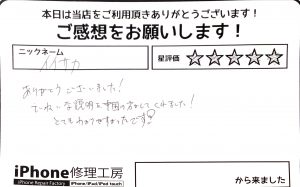 本日は当店をご利用頂きありがとうございます！
ご感想をお願いします！
ニックネーム
イイサカ
星評価 ☆☆☆☆☆
ありがとうございました！
ていねいな説明を
くれました！
とてもわかりやすかったです
iPhone修理工房
iPhone Repair Factory iPhone/iPad/iPod touch
から来ました